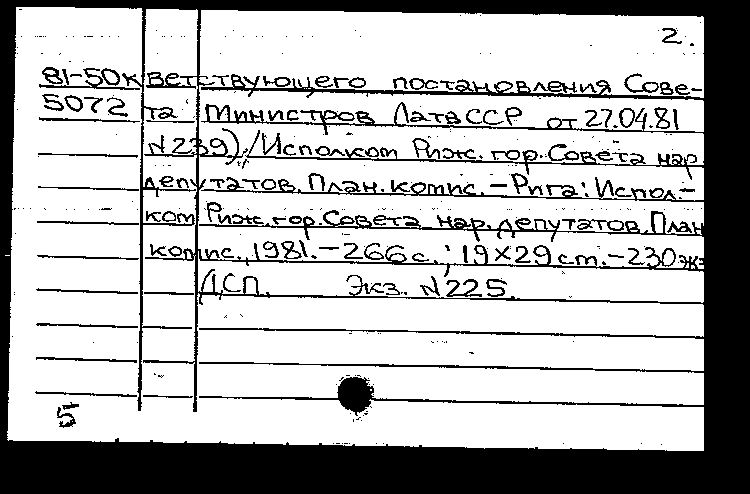 2.
81-50к ветствующего постановления Сове-
5072 та Министров ЛатвССР от 27.04.81
N239)./Исполком Риж. гор. Совета нар.
депутатов. План. комис. – Рига: Испол-
ком Риж. гор. Совета нар. депутатов. План
комис., 1981. – 266 с.; 19×29 cm. – 230 экз
ДСП. Экз. N225.
5